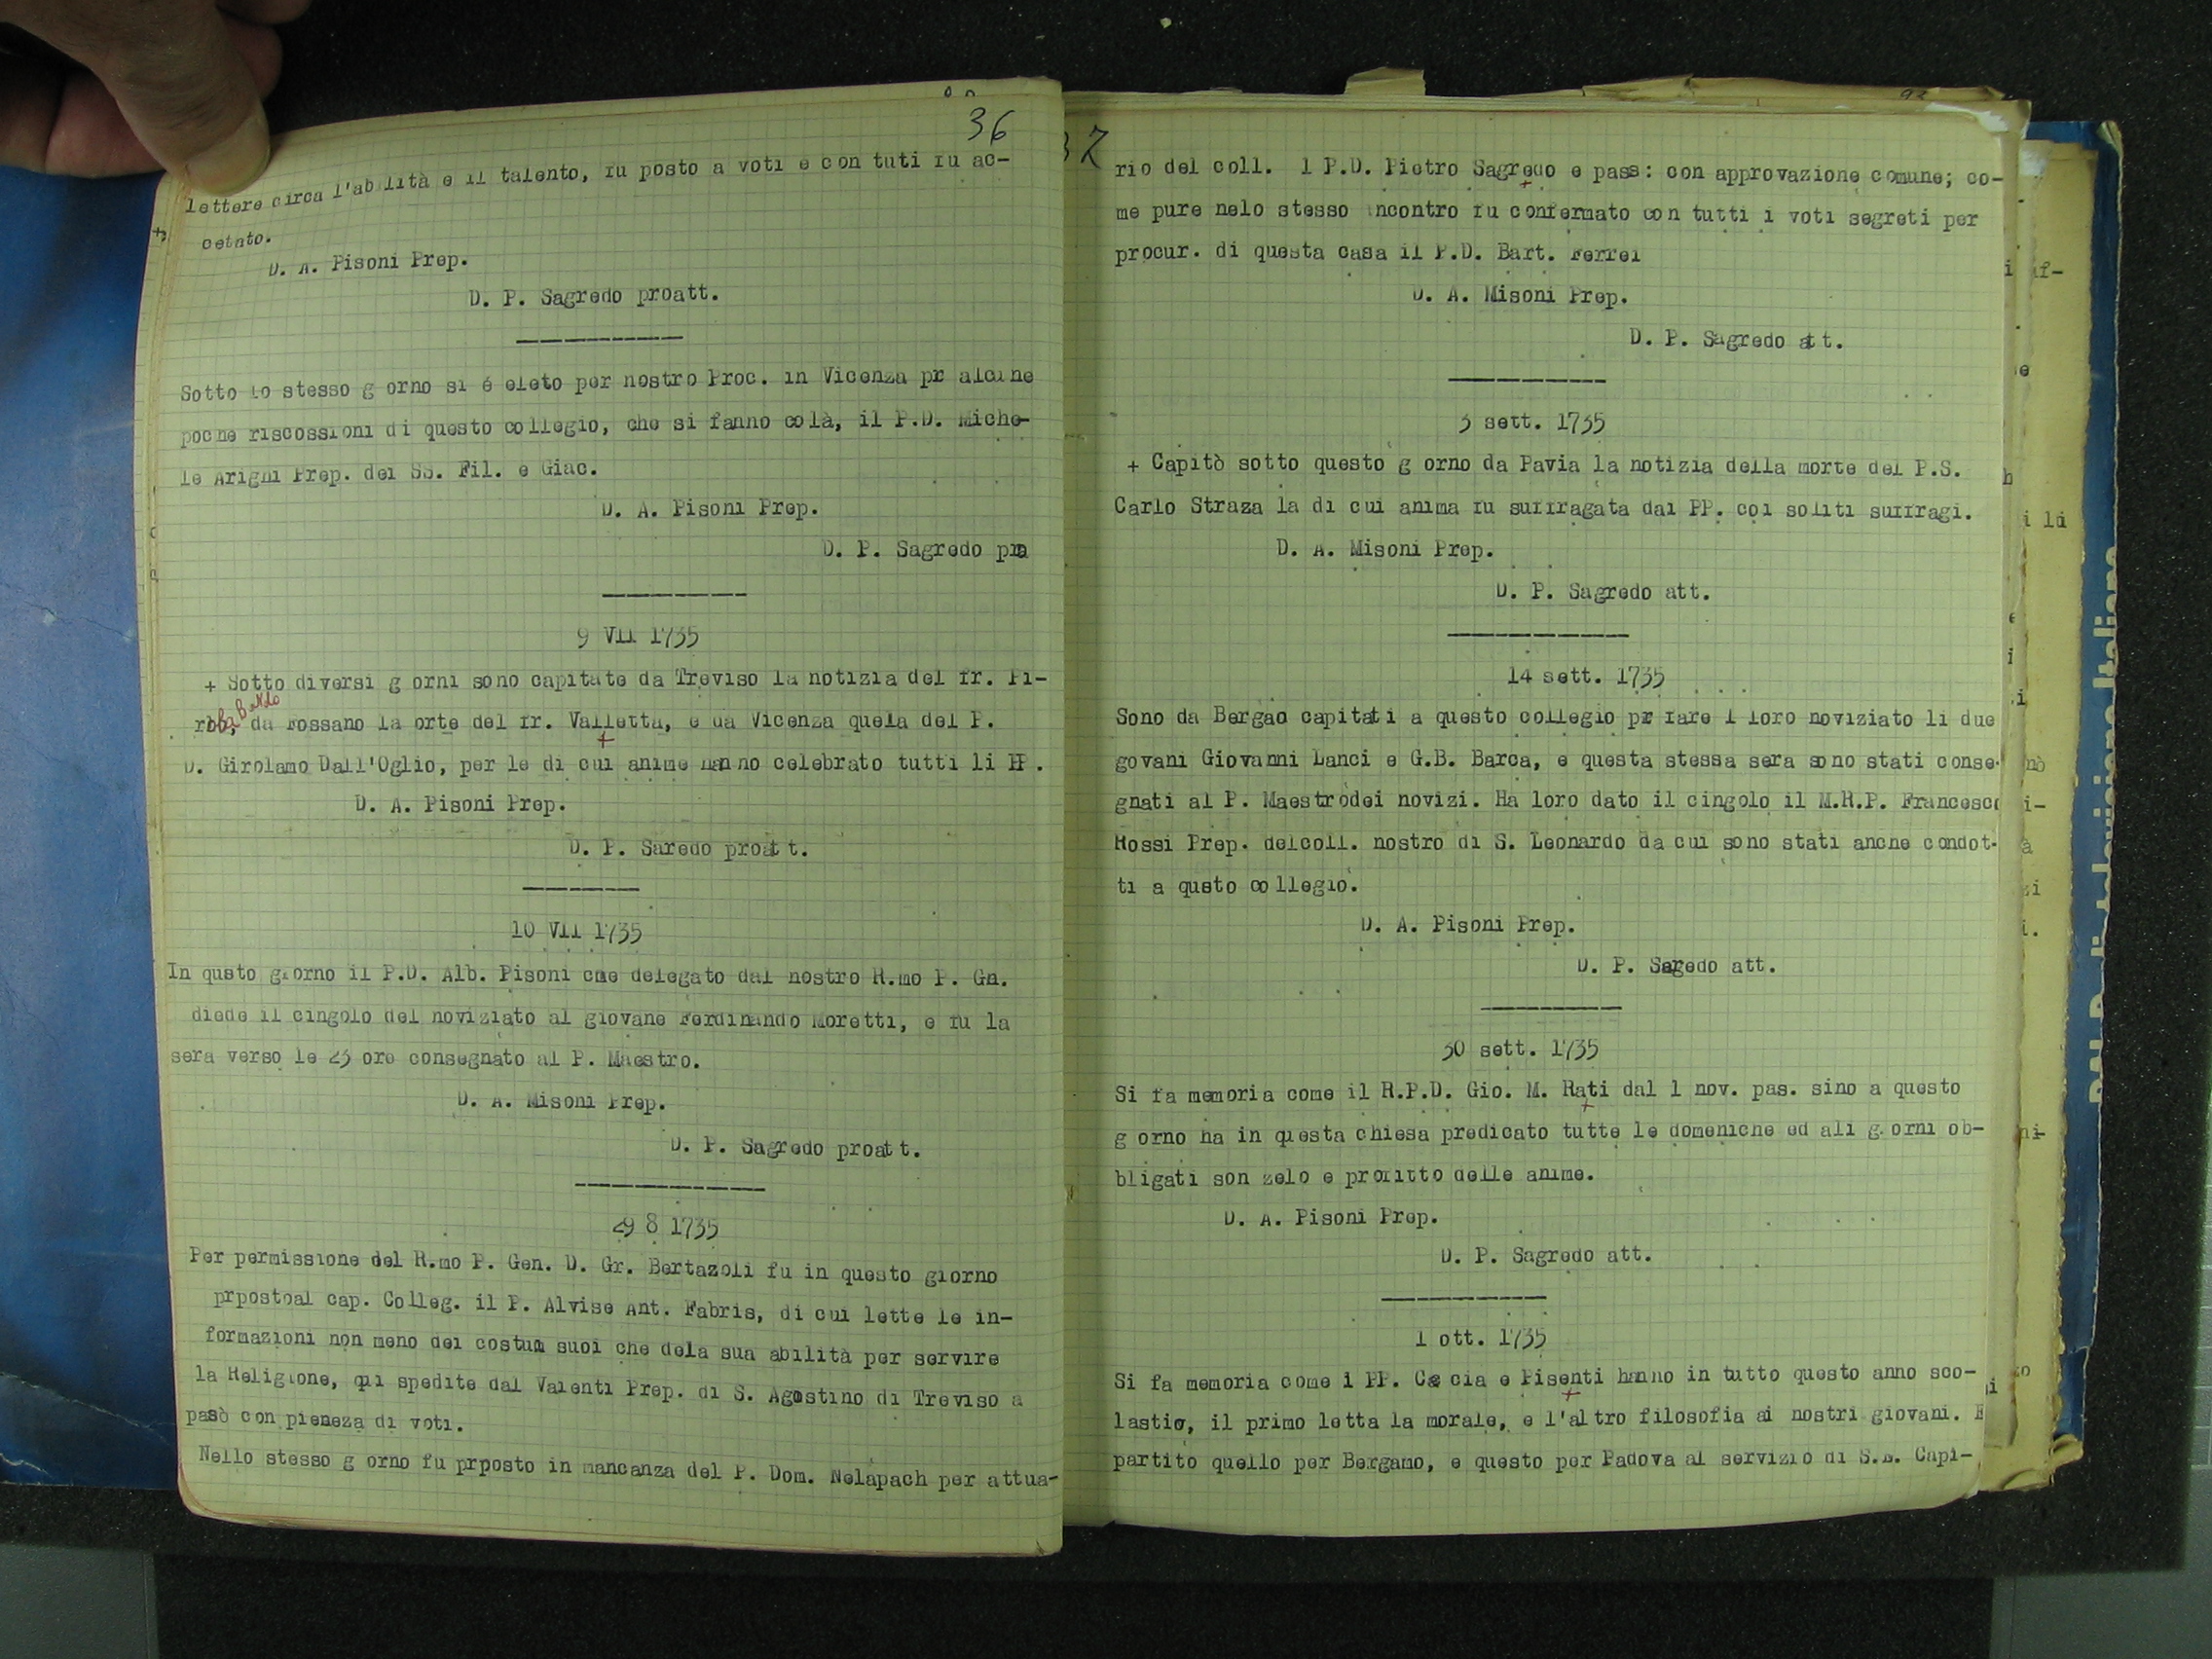 36
lettere circa l'abilità e il talento, fu posto a voti e con tuti fu ac-
cetato.
D. A. Pisoni Prep.
D. P. Sagredo proatt.
Sotto lo stesso g orno si é eleto per nostro Proc. in Vicenza pr alcune
poche riscossioni di questo collegio, che si fanno colà, il P.D. Miche-
le Arighi Prep. dei SS. Fil. e Giac.
D. A. Pisoni Prep.
D. P. Sagredo pra
9 VII 1735
+ Sotto diversi g orni sono capitate da Treviso la notizia del fr. Pi-
da Fossano la orte del fr. Valletta, e da Vicenza quela del P.
D. Girolamo Dall'Oglio, per le di cui anime hanno celebrato tutti li PP.
D. A. Pisoni Prep.
D. P. Saredo proatt.
10 VII 1735
In qusto giorno il P.D. Alb. Pisoni cme delegato dal nostro R.mo P. Gn.
diede il cingolo del noviziato al giovane Ferdinando Moretti, e fu la
sera verso le 23 ore consegnato al P. Maestro.
D. A. Misoni Prep.
D. P. Sagredo proatt.
29 8 1735
Per permissione del R.mo P. Gen. D. Gr. Bertazoli fu in questo giorno
prpostoal cap. Colleg. il P. Alvise Ant. Fabris, di cui lette le in-
formazioni non meno dei costum suoi che dela sua abilità per servire
la Religione, qui spedite dal Valenti Prep. di S. Agostino di Treviso a
pasò con pieneza di voti.
Nello stesso g orno fu prposto in mancanza del P. Dom. Nelapach per attua-
37
rio del coll. l P.D. Pietro Sagredo e pass: con approvazione comune; co-
me pure nelo stesso incontro fu confermato con tutti i voti segreti per
procur. di questa casa il P.D. Bart. Ferrei
D. A. Misoni Prep.
D. P. Sagredo att.
3 sett. 1735
+ Capitò sotto questo g orno da Pavia la notizia della morte del P.S.
Carlo Straza la di cui anima fu suffragata dai PP. coi soliti suffragi.
D. A. Misoni Prep.
D. P. Sagredo att.
14 sett. 1735
Sono da Bergao capitati a questo collegio pr fare l loro noviziato li due
govani Giovanni Lanci e G.B. Barca, e questa stessa sera sono stati conse-
gnati al P. Maestrodei novizi. Ha loro dato il cingolo il M.R.P. Francesco
Rossi Prep. delcoll. nostro di S. Leonardo da cui sono stati anche condot-
ti a qusto collegio.
D. A. Pisoni Prep.
D. P. Sagedo att.
30 sett. 1735
Si fa memoria come il R.P.D. Gio. M. Rati dal 1 nov. pas. sino a questo
g orno ha in questa chiesa predicato tutte le domeniche ed ali g orni ob-
bligati son zelo e profitto delle anime.
D. A. Pisoni Prep.
D. P. Sagredo att.
1 ott. 1735
Si fa memoria come i PP. Caccia e Pisenti hanno in tutto questo anno sco-
lastio, il primo letta la morale, e l'altro filosofia ai nostri giovani. E
partito quello per Bergamo, e questo per Padova al servizio di S.E. Capi-